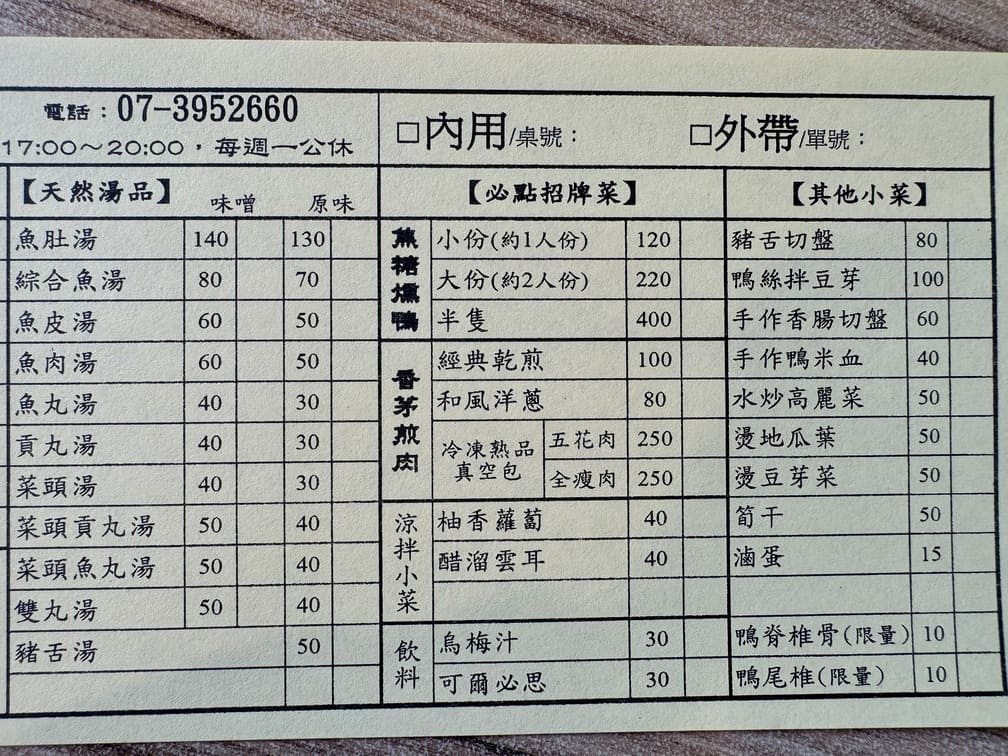 電話：07-3952660
17:00～20:00，每週一公休
□內用/桌號：
□外帶/單號：
【天然湯品】 味噌 原味
魚肚湯 140 130
綜合魚湯 80 70
魚皮湯 60 50
魚肉湯 60 50
魚丸湯 40 30
貢丸湯 40 30
菜頭湯 40 30
菜頭貢丸湯 50 40
菜頭魚丸湯 50 40
雙丸湯 50 40
豬舌湯 50
【必點招牌菜】
焦糖燻鴨
小份(約1人份) 120
大份(約2人份) 220
半隻 400
香茅煎肉
經典乾煎 100
和風洋蔥 80
冷凍熟品
真空包
五花肉 250
全瘦肉 250
涼拌小菜
柚香蘿蔔 40
醋溜雲耳 40
飲料
烏梅汁 30
可爾必思 30
【其他小菜】
豬舌切盤 80
鴨絲拌豆芽 100
手作香腸切盤 60
手作鴨米血 40
水炒高麗菜 50
燙地瓜葉 50
燙豆芽菜 50
筍干 50
滷蛋 15
鴨脊椎骨(限量) 10
鴨尾椎(限量) 10